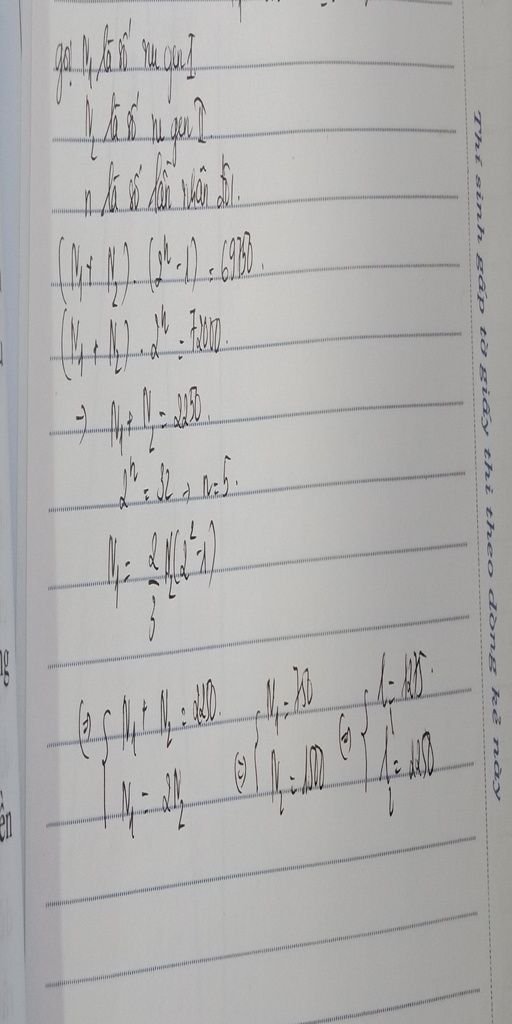 gọi N₁ là số nu gen I
N₂ là số nu gen II.
n là số lần nhân đôi.
(N₁ + N₂) . (2ⁿ - 1) = 69750.
(N₁ + N₂) . 2ⁿ = 72000.
⇒ N₁ + N₂ = 2250.
2ⁿ = 32 → n = 5.
N₁ = 2/3 N₂(2² - 1)
(=) { N₁ + N₂ = 2250. (=) { N₁ = 750 (=) { l₁ = 1275.
N₁ = 2N₂ N₂ = 1500 l₂ = 2250
Thí sinh gấp tờ giấy thi theo dòng kẻ này